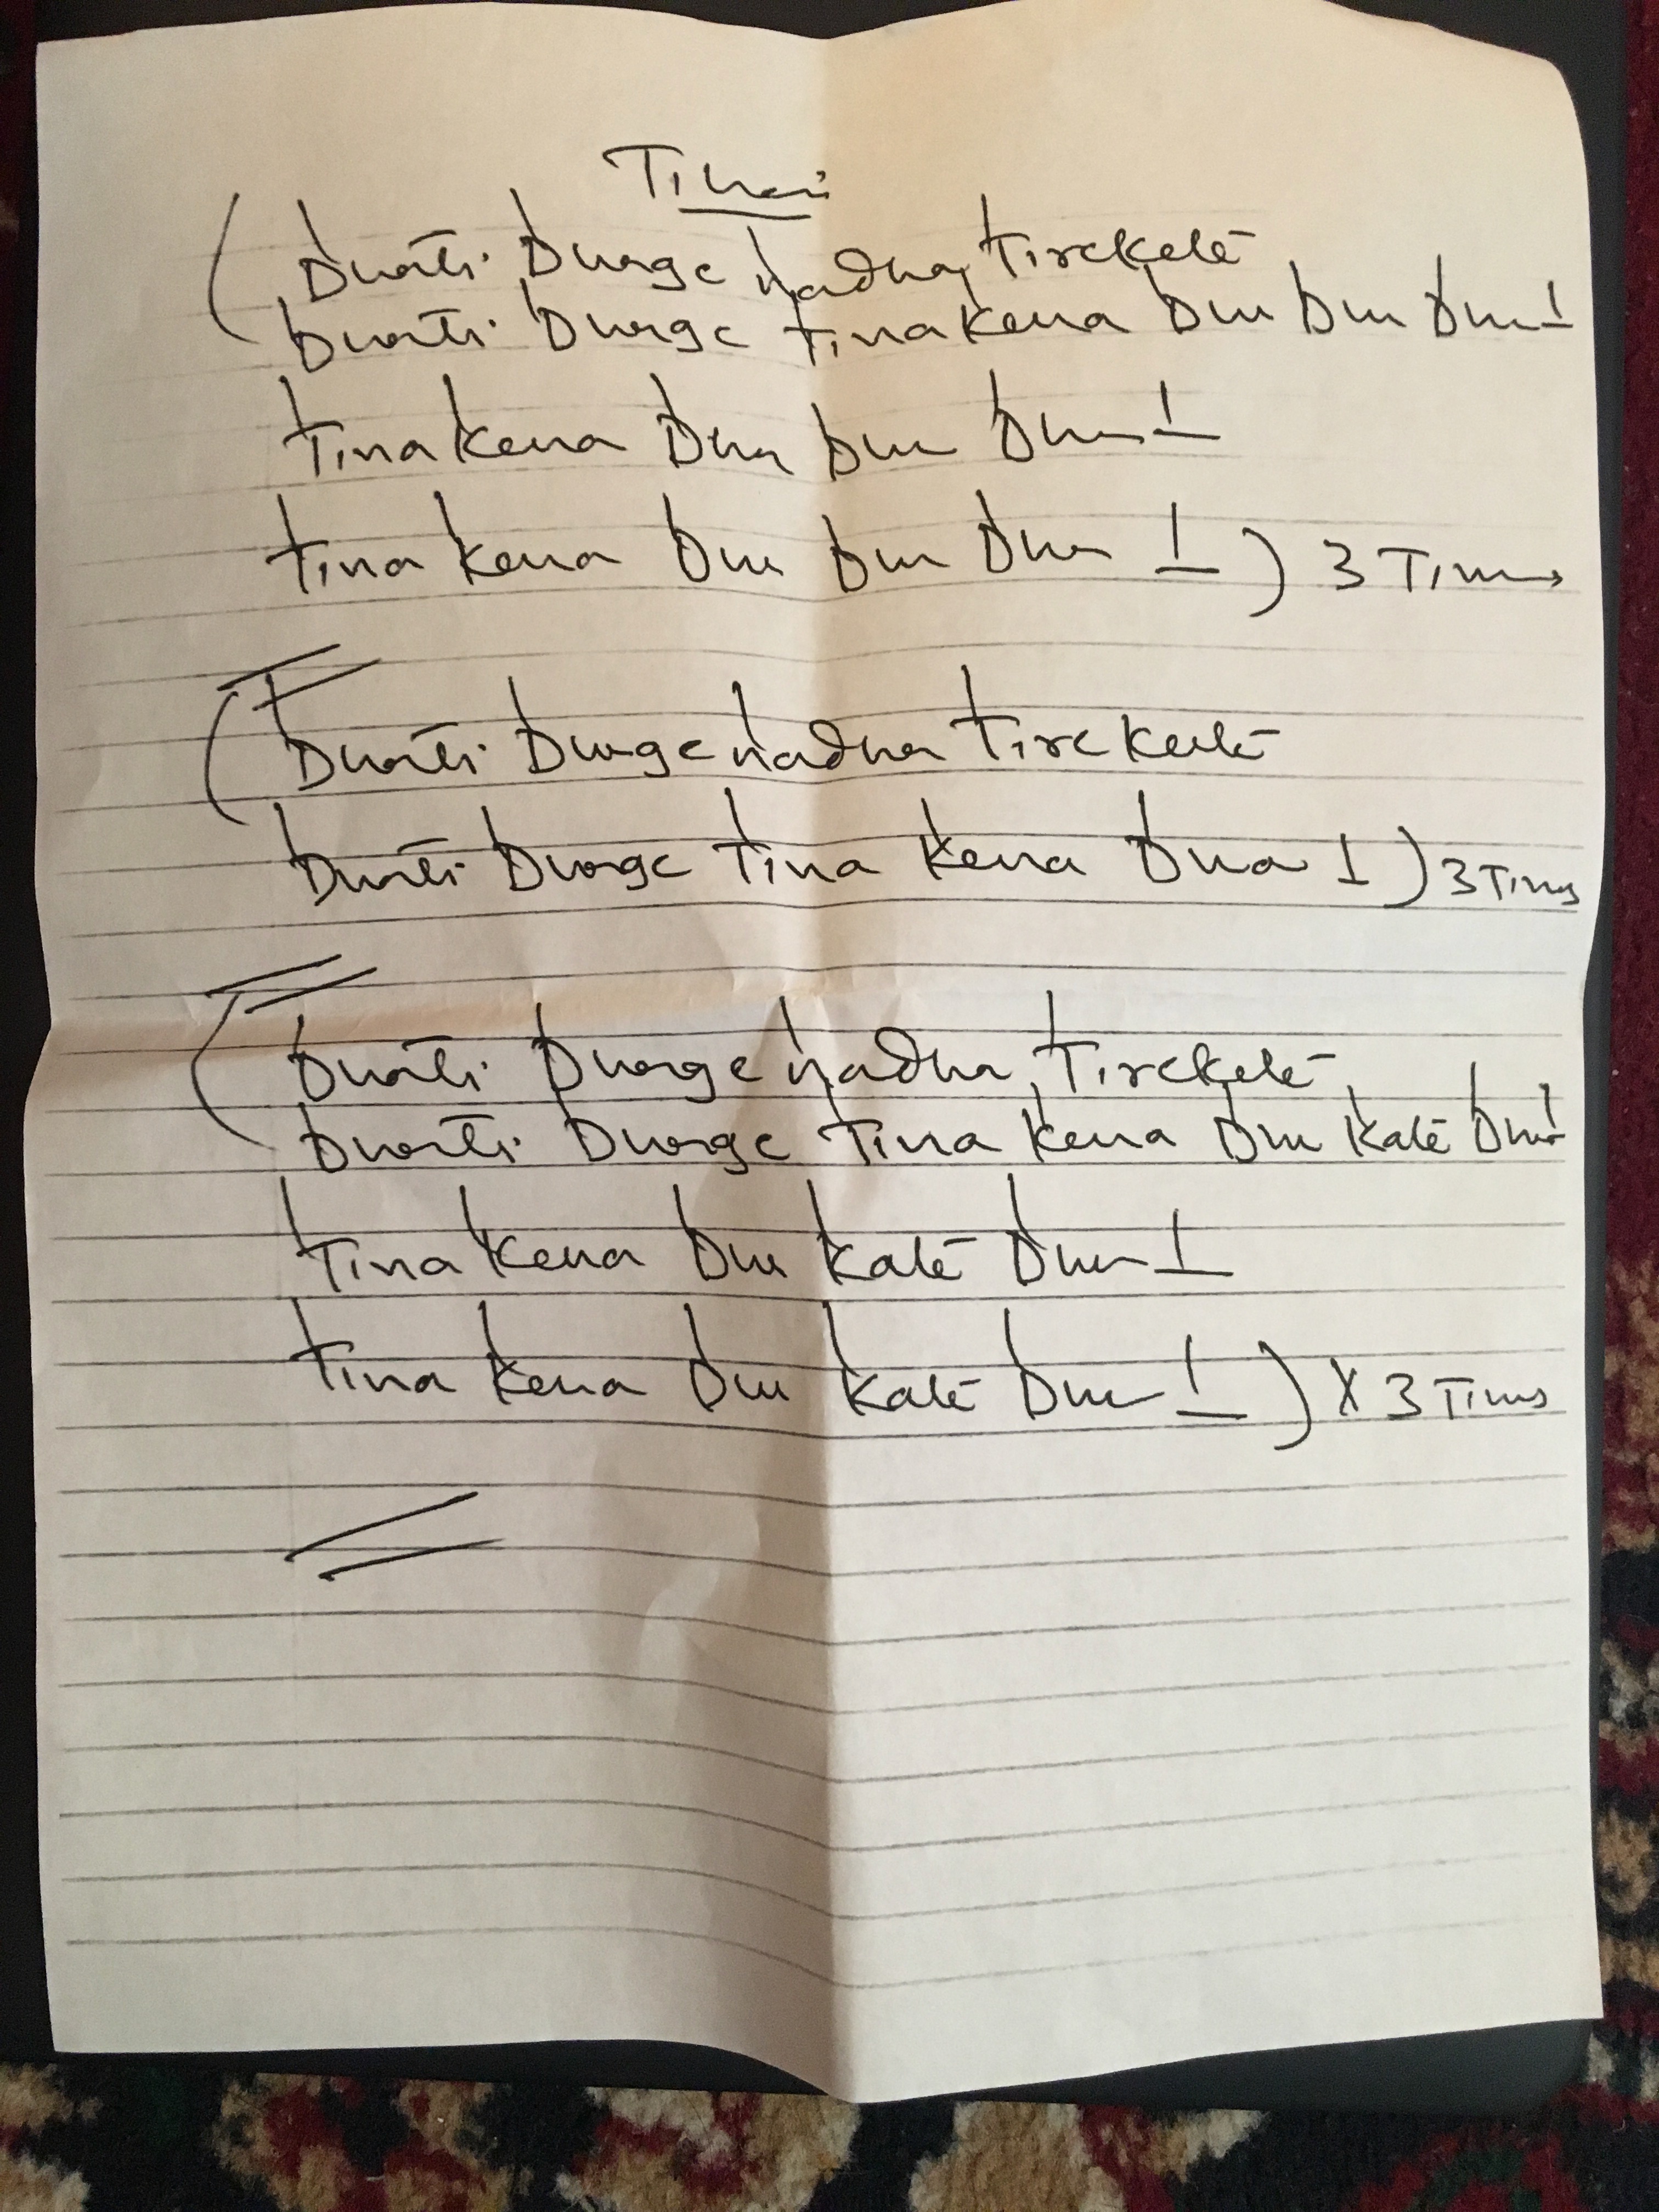 Tihai
(Dhati Dhage nadha, tirekete
Dhati Dhage tinakena Dha Dha Dha 1
tinakena Dha Dha Dha 1
tina kena Dha Dha Dha 1) 3 Times
(Dhati Dhage nadha tirekete
Dhati Dhage tina kena Dha 1) 3 Times
(Dhati Dhage nadha, tirekete
Dhati Dhage tina kena Dha kate Dha 1
tina kena Dha kate Dha 1
tina kena Dha kate Dha 1) X 3 Times